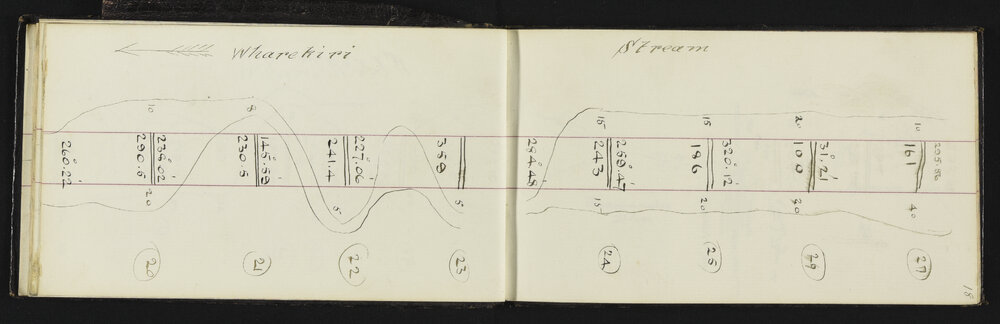 Wharekiri Stream
10 8 15 15 20 10
260.22
290.5
238.02
230.5
145.58
241.4
227.06
358
254.48
243
259.47
186
320.12
100
31.21
161
20 5 5 15 20 30 40
20 21 22 23 24 25 26 27
18